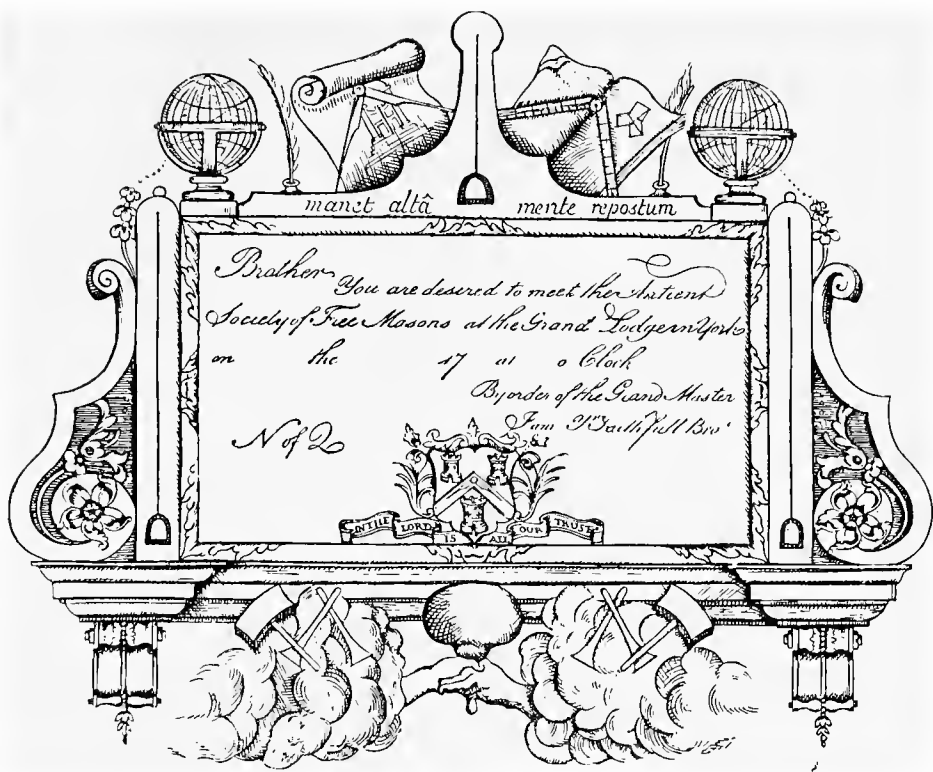 manet altâ mente repostum
Brother
You are desired to meet the Antient
Society of Free Masons at the Grand Lodge in York
on the 17 at o Clock
By order of the Grand Master
I am Yr Faithfull Bror
N of 2
IN THE LORD IS ALL OUR TRUST